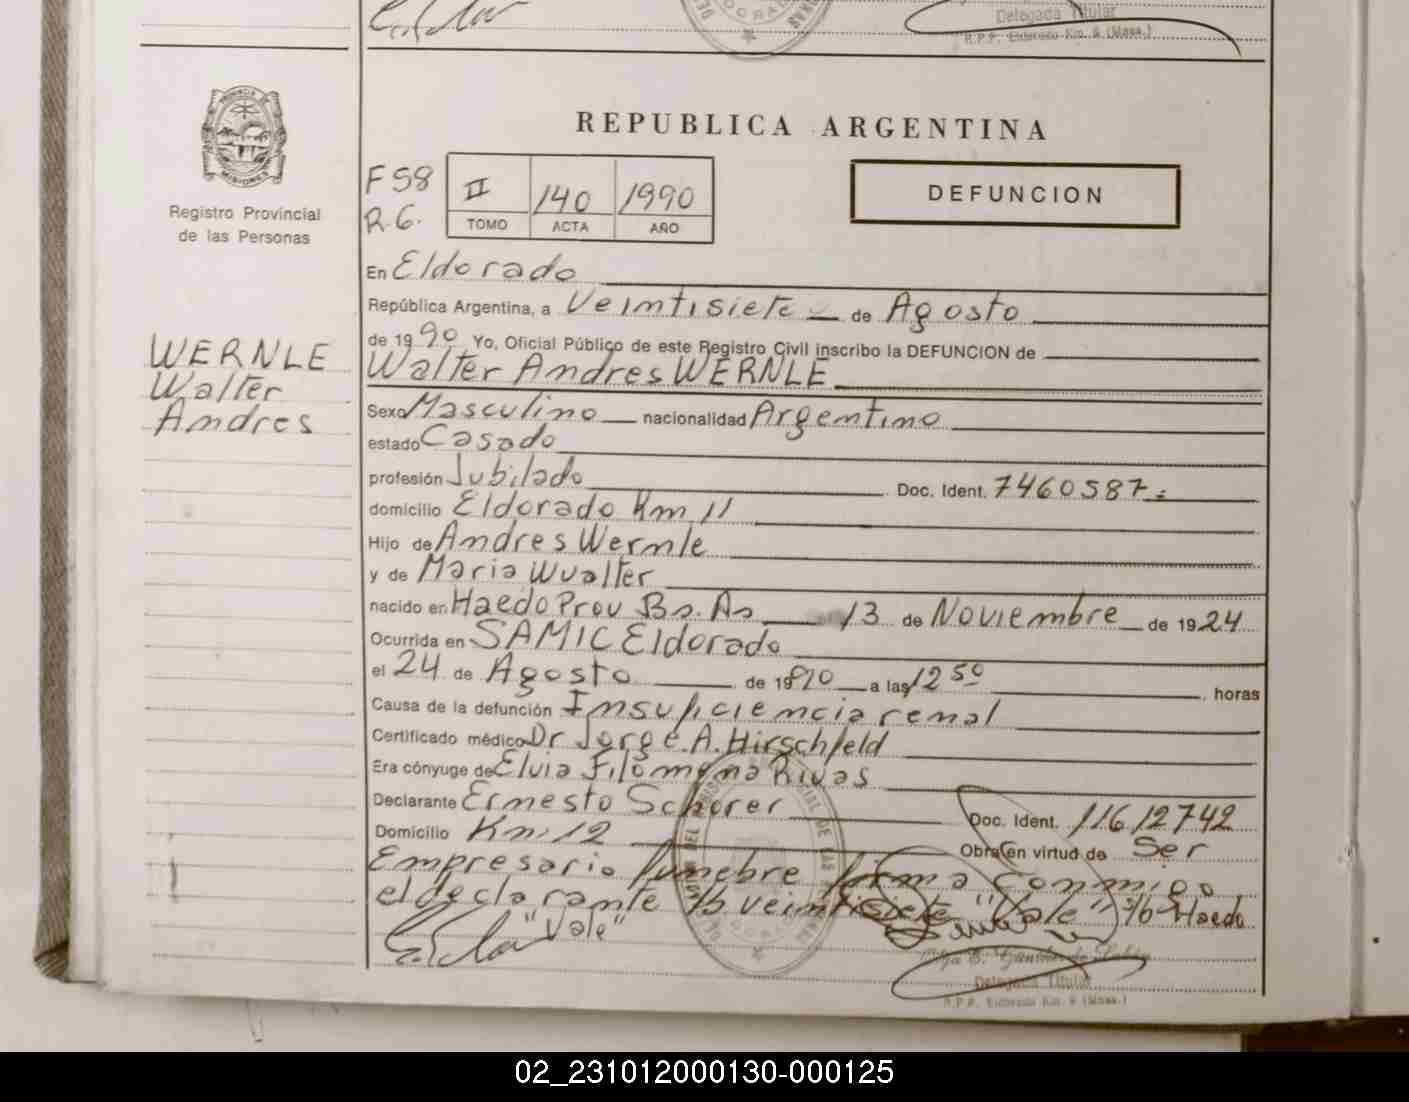 Delegada Titular
R.P.P. Eldorado Km. 9 (Mnes.)
PROVINCIA DE
MISIONES
Registro Provincial
de las Personas
REPUBLICA ARGENTINA
F 58
R.G.
II 140 1990
TOMO ACTA AÑO
DEFUNCION
En Eldorado
República Argentina, a Veintisiete de Agosto
de 1990 Yo, Oficial Público de este Registro Civil inscribo la DEFUNCION de
Walter Andres WERNLE
WERNLE
Walter
Andres
Sexo Masculino nacionalidad Argentino
estado Casado
profesión Jubilado Doc. Ident. 7460587.=
domicilio Eldorado Km 11
Hijo de Andres Wernle
y de Maria Wualter
nacido en Haedo Prov Bs. As 13 de Noviembre de 1924
Ocurrida en SAMIC Eldorado
el 24 de Agosto de 1990 a las 12 50 horas
Causa de la defunción Insuficiencia renal
Certificado médico Dr Jorge. A. Hirschfeld
Era cónyuge de Elvia Filomena Rivas
Declarante Ernesto Schorer Doc. Ident. 11612742
Domicilio Km 12 Obra en virtud de Ser
Empresario funebre firma conmigo
el declarante Veintisiete "Vale" Haedo
"Vale"
Delegada Titular
R.P.P. Eldorado Km. 9 (Mnes.)
02_231012000130-000125